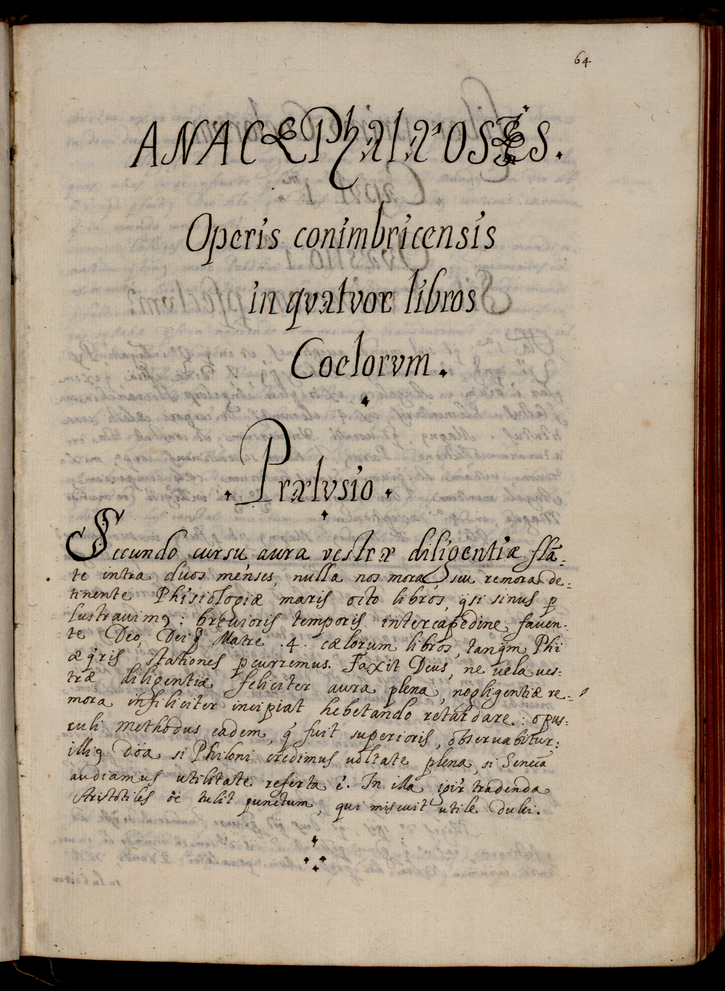 64
ANACEPhalæOSES.
Operis conimbricensis
in qvatvor libros
Coelorvm.
Prælvsio.
Secundo cursu aura vestræ diligentiæ flã-
te intra duos menses, nulla nos mora, seu remora de-
tinente Phisiologiæ maris octo libros, qsi sinus p
lustravimꝯ: brevioris temporis intercapedine, faven-
te Deo, Deiq Matre .4. cælorum libros, tanqm Phi
æ gris stationes pcurremus. Faxit Deus, ne vela ves-
træ diligentiæ feliciter aura plena, negligentiæ re-
mora infiliciter incipiat hebetando retardare: opus-
culi methodus eadem, q fuit superioris, observabitur:
illiꝯ Döa si Philoni credimus vtltate plena, si Seneca
audiamus utilitate referta ẽ. In illa igir tradenda
Aristotiles õe tulit punctum, qui miscuit utile dulci.